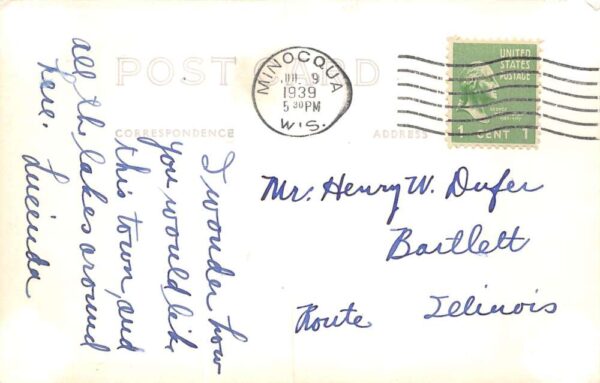 POST CARD
CORRESPONDENCE
ADDRESS
MINOCQUA
JUL 9
1939
5 30 PM
WIS.
UNITED
STATES
POSTAGE
1 CENT 1
I wonder how
you would like
this town, and
all the lakes around
here. Lucinda
Mr. Henry W. Dufer
Bartlett
Route Illinois